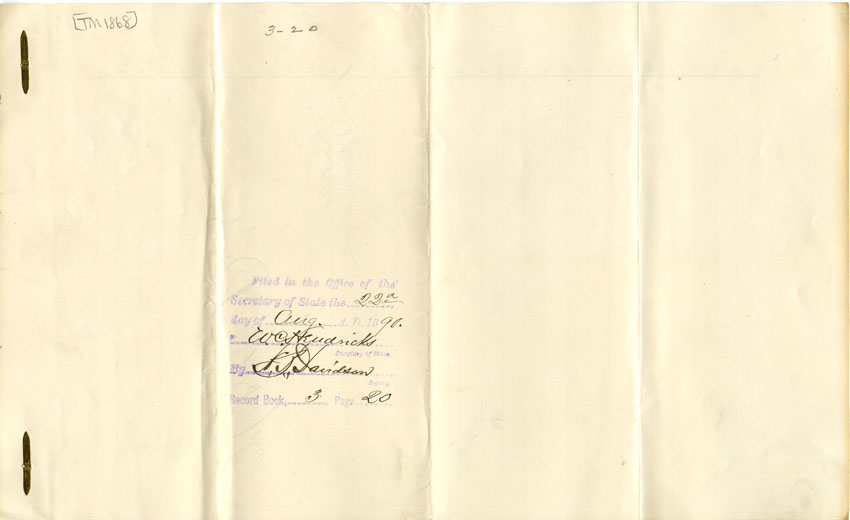 [TM1868]
3-20
Filed in the Office of the
Secretary of State the 22d
day of Aug. A. D. 1890.
W C Hendricks
Secretary of State.
By Davidson
Deputy.
Record Book, 3, Page 20